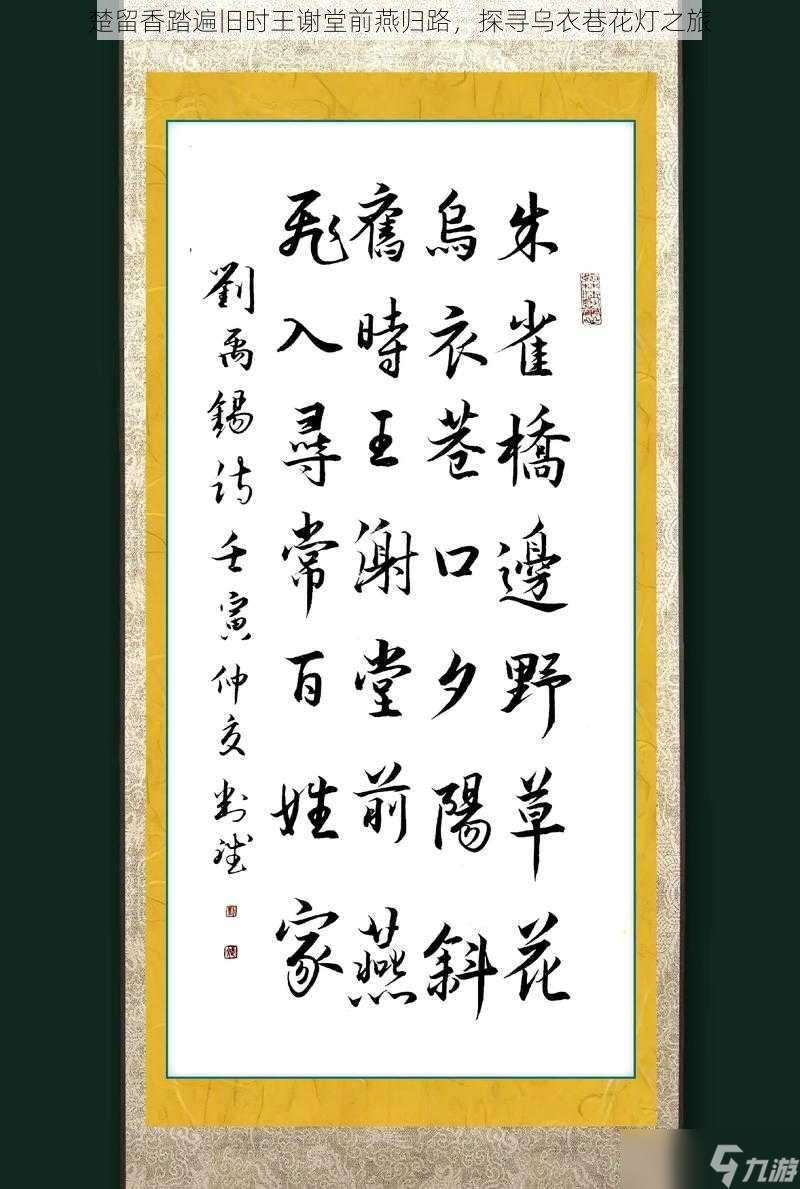 楚留香踏遍旧时王谢堂前燕归路，探寻乌衣巷花灯之旅
朱雀橋邊野草花
烏衣巷口夕陽斜
舊時王謝堂前燕
飛入尋常百姓家
劉禹錫詩壬寅仲夏
九游